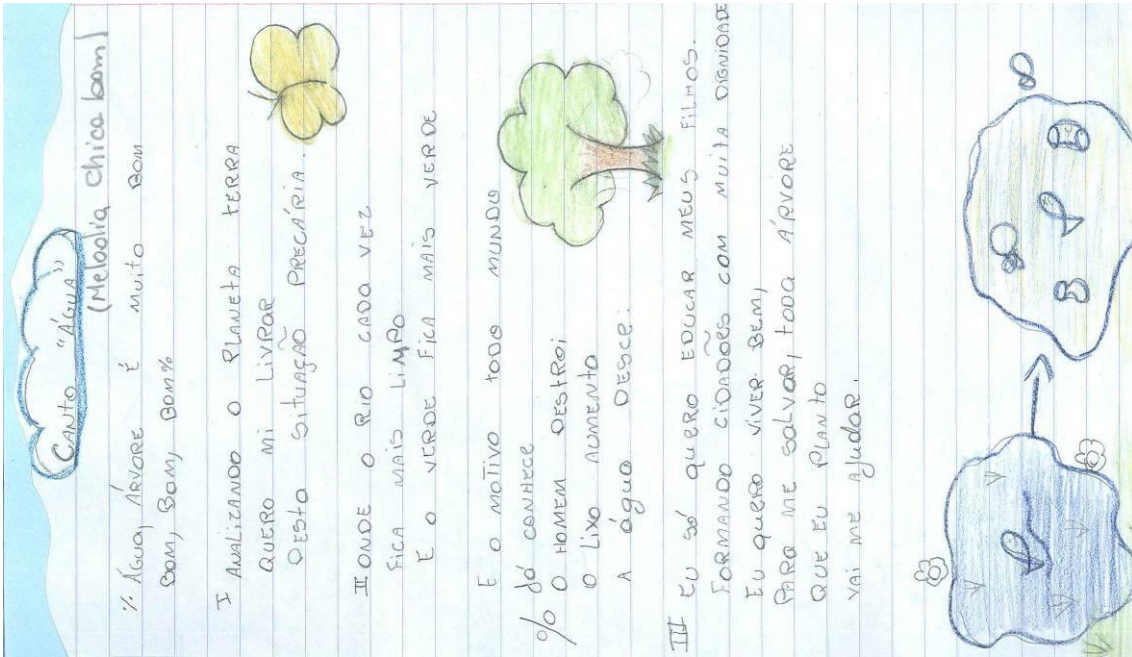 CANTO "ÁGUA"
(Melodia chica bom)
% ÁGUA, ÁRVORE É MUITO BOM
BOM, BOM, BOM %
I ANALIZANDO O PLANETA TERRA
QUERO MI LIVRAR
DESTA SITUAÇÃO PRECÁRIA.
II ONDE O RIO CADA VEZ
FICA MAIS LIMPO
E O VERDE FICA MAIS VERDE
E O MOTIVO TODO MUNDO
JÁ CONHECE
% O HOMEM DESTROI
O LIXO AUMENTA
A água DESCE.
III EU SÓ QUERO EDUCAR MEUS FILHOS.
FORMANDO CIDADÕES COM MUITA DIGNIDADE
EU QUERO VIVER BEM,
PARA ME SALVAR, TODA ÁRVORE
QUE EU PLANTO
VAI ME AJUDAR.